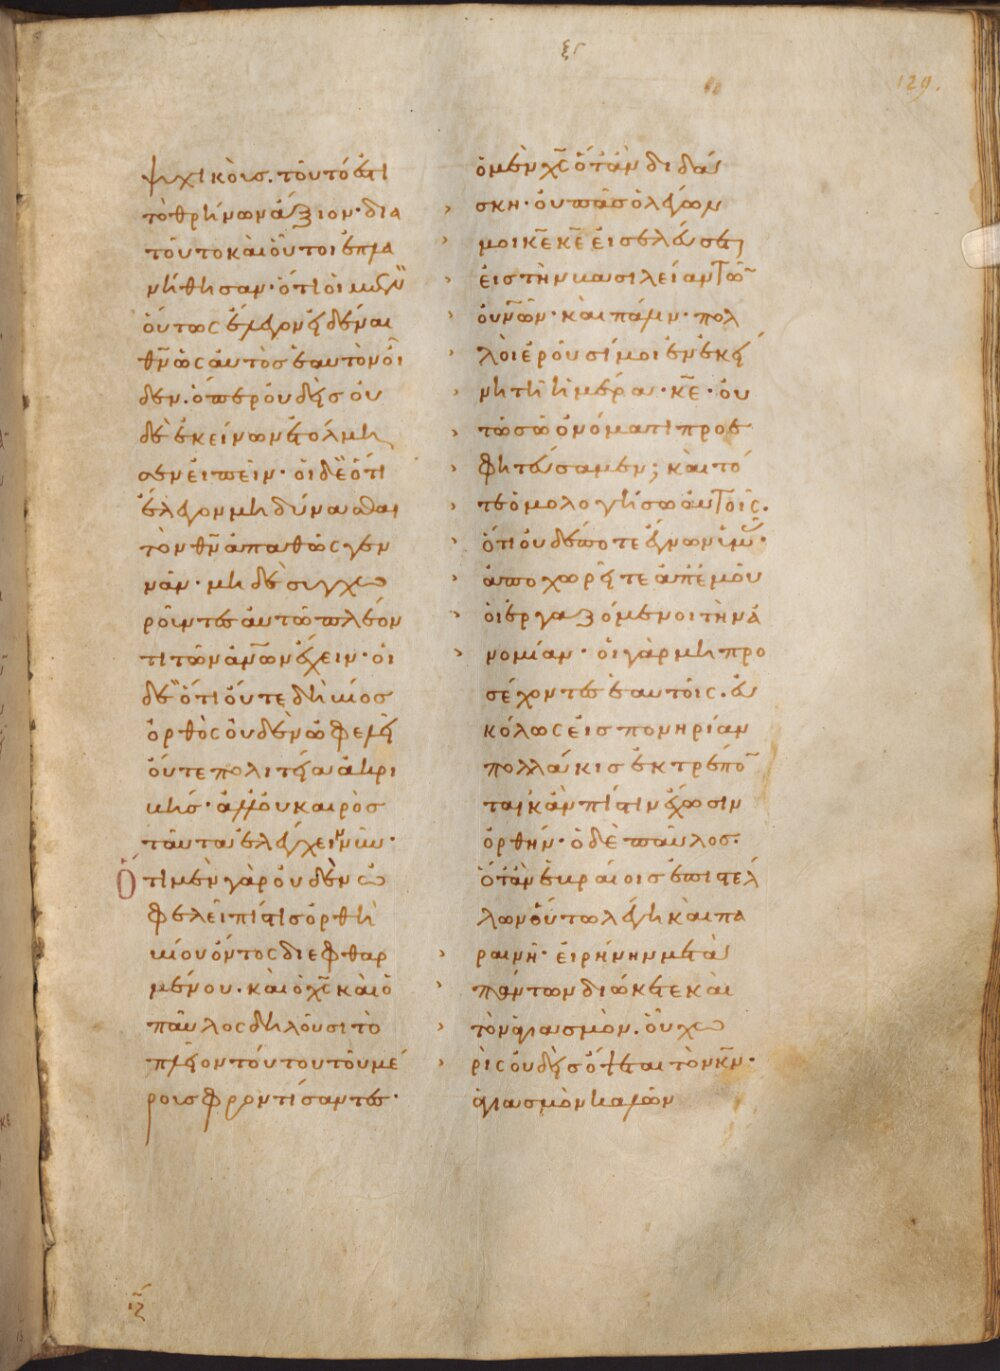 ξϛ
129.
ψυχικοῖσ. τοῦτό ἐστι
τὸ θρήνων ἄξιον· δια
τοῦτο καὶ οὗτοι ἐπλα
νήθησαν· ὅτι οἱ μὲν
οὕτως ἔλεγον εἰδέναι
θν̅ ὡς αὐτὸσ ἑαυτὸν οἶ
δεν. ὅπερ οὐδεὶσ οὐ
δὲ ἐκείνων ἐτόλμη
σεν εἰπεῖν· οἱ δὲ ὅτι
ἔλεγον μὴ δύνασθαι
τὸν θν̅ ἀπαθῶς γεν
νᾶν· μὴ δὲ συγχω
ροῦντεσ αὐτῶ πλέον
τι τῶν ἀνω̅ν ἔχειν· οἱ
δὲ ὅτι οὔτε δὴ βίοσ
ὀρθὸς οὐδὲν ὠφελεῖ
οὔτε πολιτεία ἀκρι
βήσ· ἀλλ' οὐ καιρὸσ
ταῦτα ἐλέγχειν νῦν·
Ὅτι μὲν γὰρ οὐδὲν ὠ
φελεῖ πίστισ ὀρθὴ
βίου ὄντος διεφθαρ
μένου· καὶ ὁ χς̅ καὶ ὁ
παῦλος δηλοῦσι τὸ
πλεῖον τούτου τοῦ μέ
ροισ φροντίσαντεσ·
ὁ μὲν χς̅ ὅταν διδά
σκη· οὐ πᾶσ ὁ λέγων
μοι κε̅ κε̅ εἰσελεύσεται
εἰς τὴν βασιλείαν τῶν
οὐνω̅ν· καὶ πάλιν· πολ
λοὶ ἐροῦσί μοι ἐν ἐκεί
νη τῆ ἡμέρα· κε̅· οὐ
τῶ σῶ ὀνόματι προε
φητεύσαμεν; καὶ τό
τε ὁμολογήσω αὐτοῖς.
ὅτι οὐδέποτε ἔγνων ὑμᾶς·
ἀποχωρεῖτε ἀπ' ἐμοῦ
οἱ ἐργαζόμενοι τὴν ἀ
νομίαν· οἱ γὰρ μὴ προ
σέχοντεσ ἑαυτοῖς. εὐ
κόλως εἰσ πονηρίαν
πολλάκισ ἐκτρέπον
ται κἂν πίστιν ἔχωσιν
ὀρθήν· ὁ δὲ παῦλοσ·
ὅταν ἑβραίοισ ἐπιστέλ
λων οὕτω λέγη καὶ πα
ραινῆ· εἰρήνην μετὰ
πάντων διώκετε καὶ
τὸν ἁγιασμὸν. οὗ χω
ρὶς οὐδεὶσ ὄψεται τὸν κν̅·
ἁγιασμὸν καλῶν
ιζ